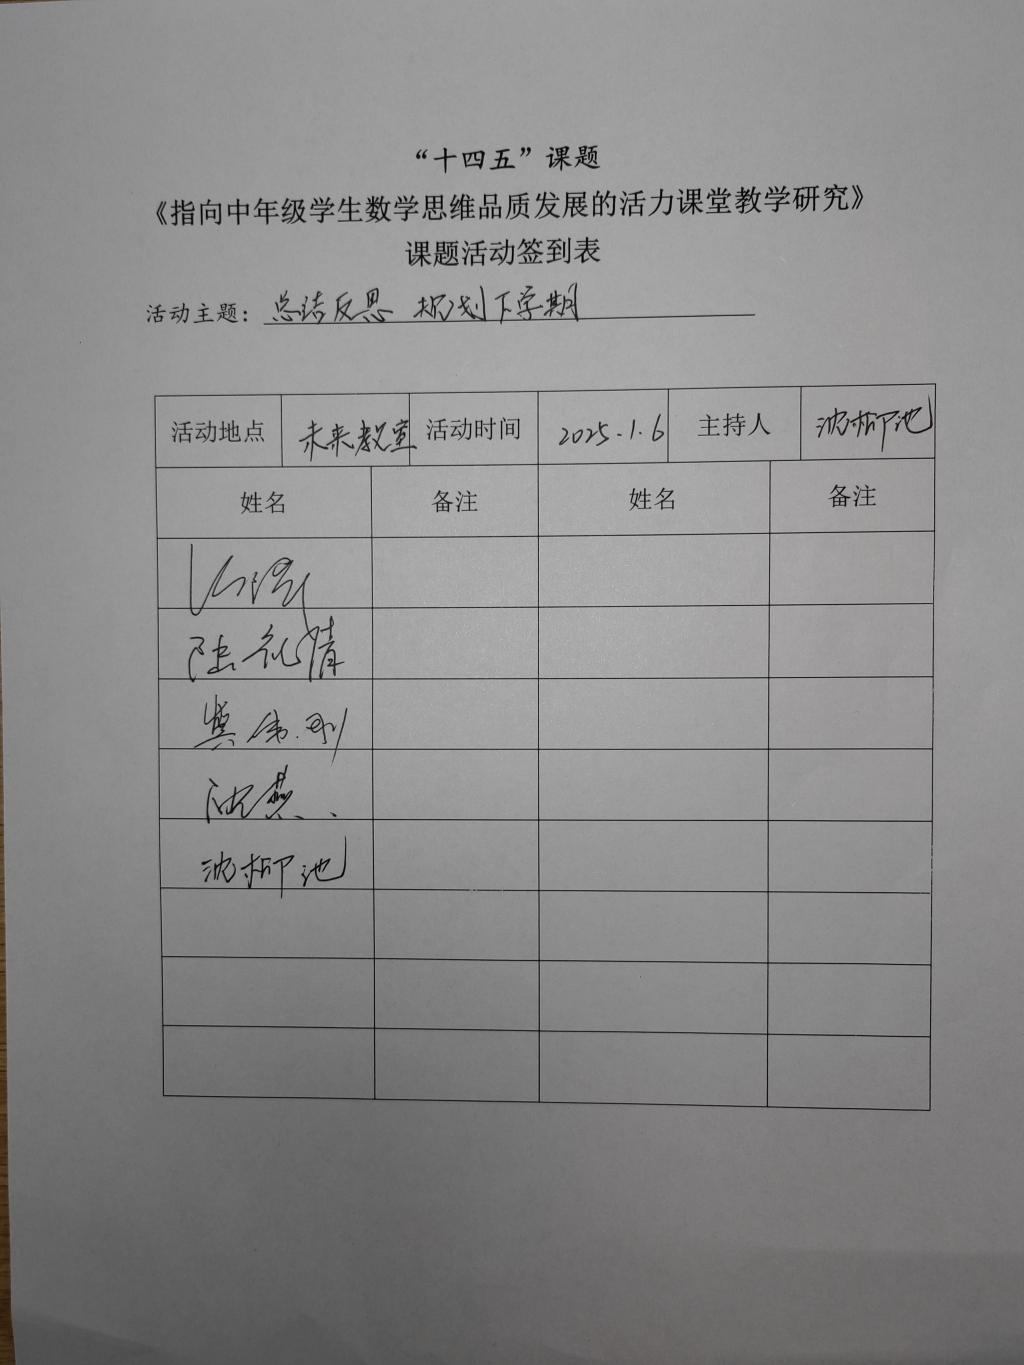 “十四五”课题
《指向中年级学生数学思维品质发展的活力课堂教学研究》
课题活动签到表
活动主题：总结反思 规划下学期
活动地点 未来教室 活动时间 2025.1.6 主持人 沈柳池
姓名 备注 姓名 备注
陆礼情
冀伟刚
沈燕
沈柳池